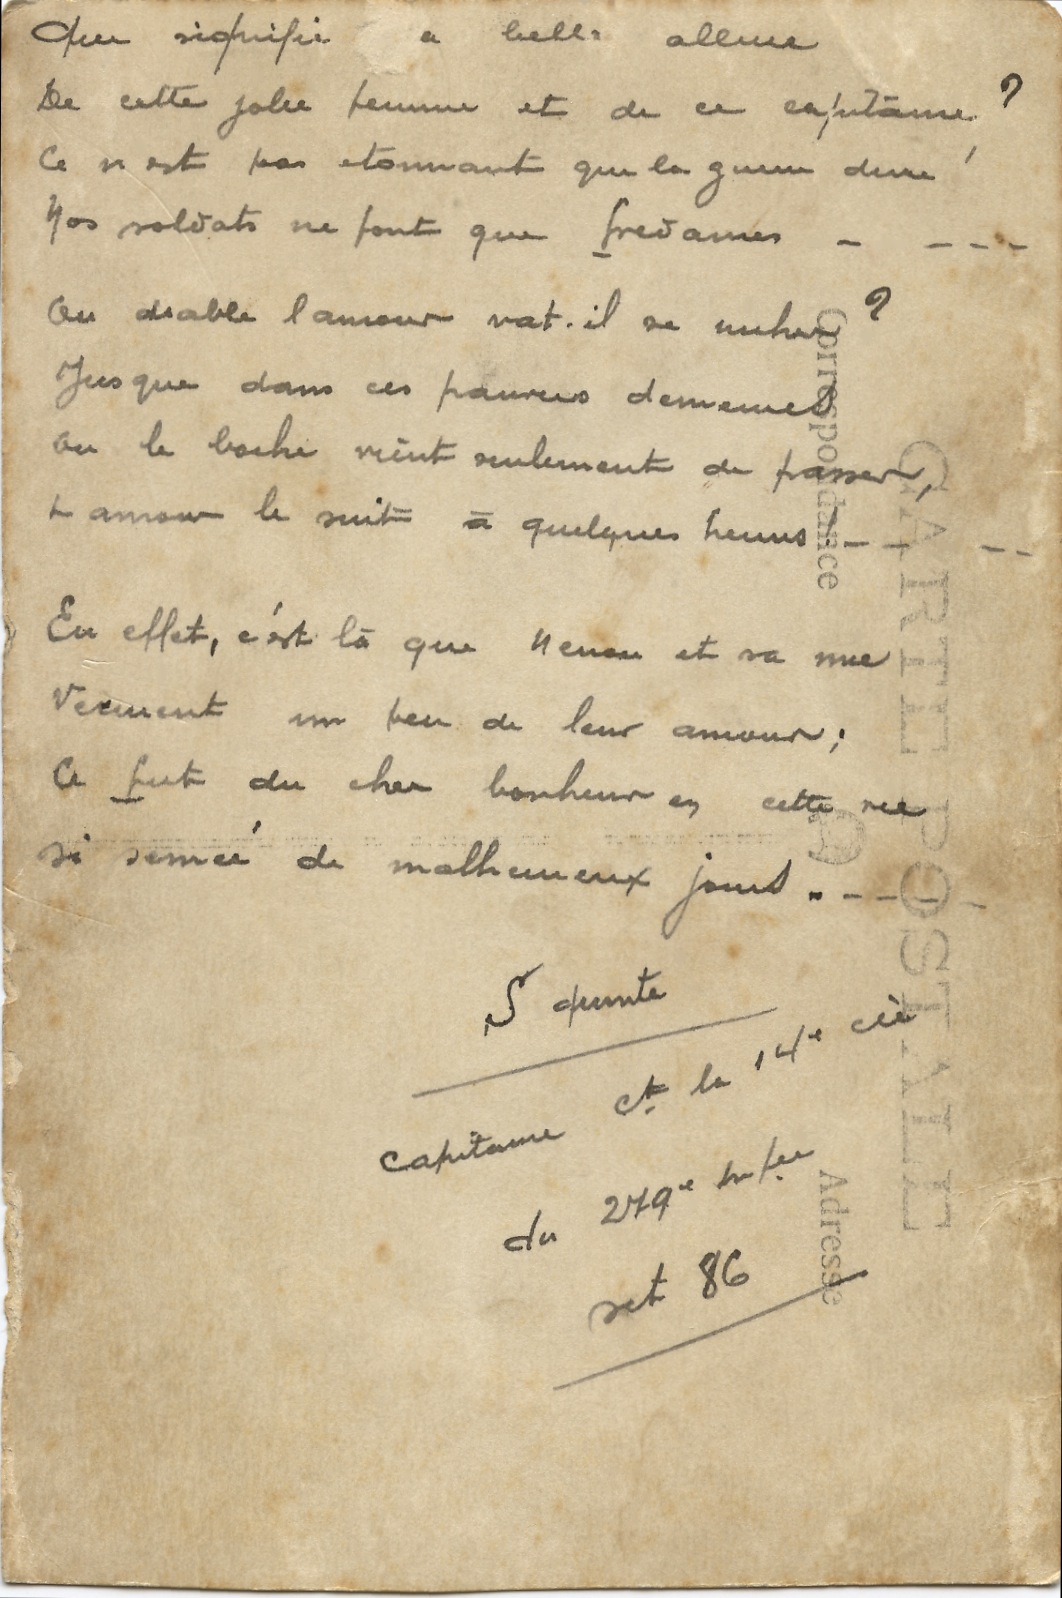 Que signifie a belle allure
De cette jolie femme et de ce capitaine ?
Ce n est pas etonnant que la guerre dure !
Nos soldats ne font que fredaines - - - -
Ou diable l amour vat-il se nicher ?
Jusque dans ces pauvres demeures
ou le boche vient seulement de passer,
L amour le suit à quelques heures ! - - - -
En effet, c'est là que Nenou et sa mie
Vécurent un peu de leur amour ;
Ce fut du cher bonheur en cette vie
si semée de malheureux jours . - - - - -
capitaine ct la 14e cie
du 279e infie
set 86
CARTE POSTALE
Correspondance
Adresse